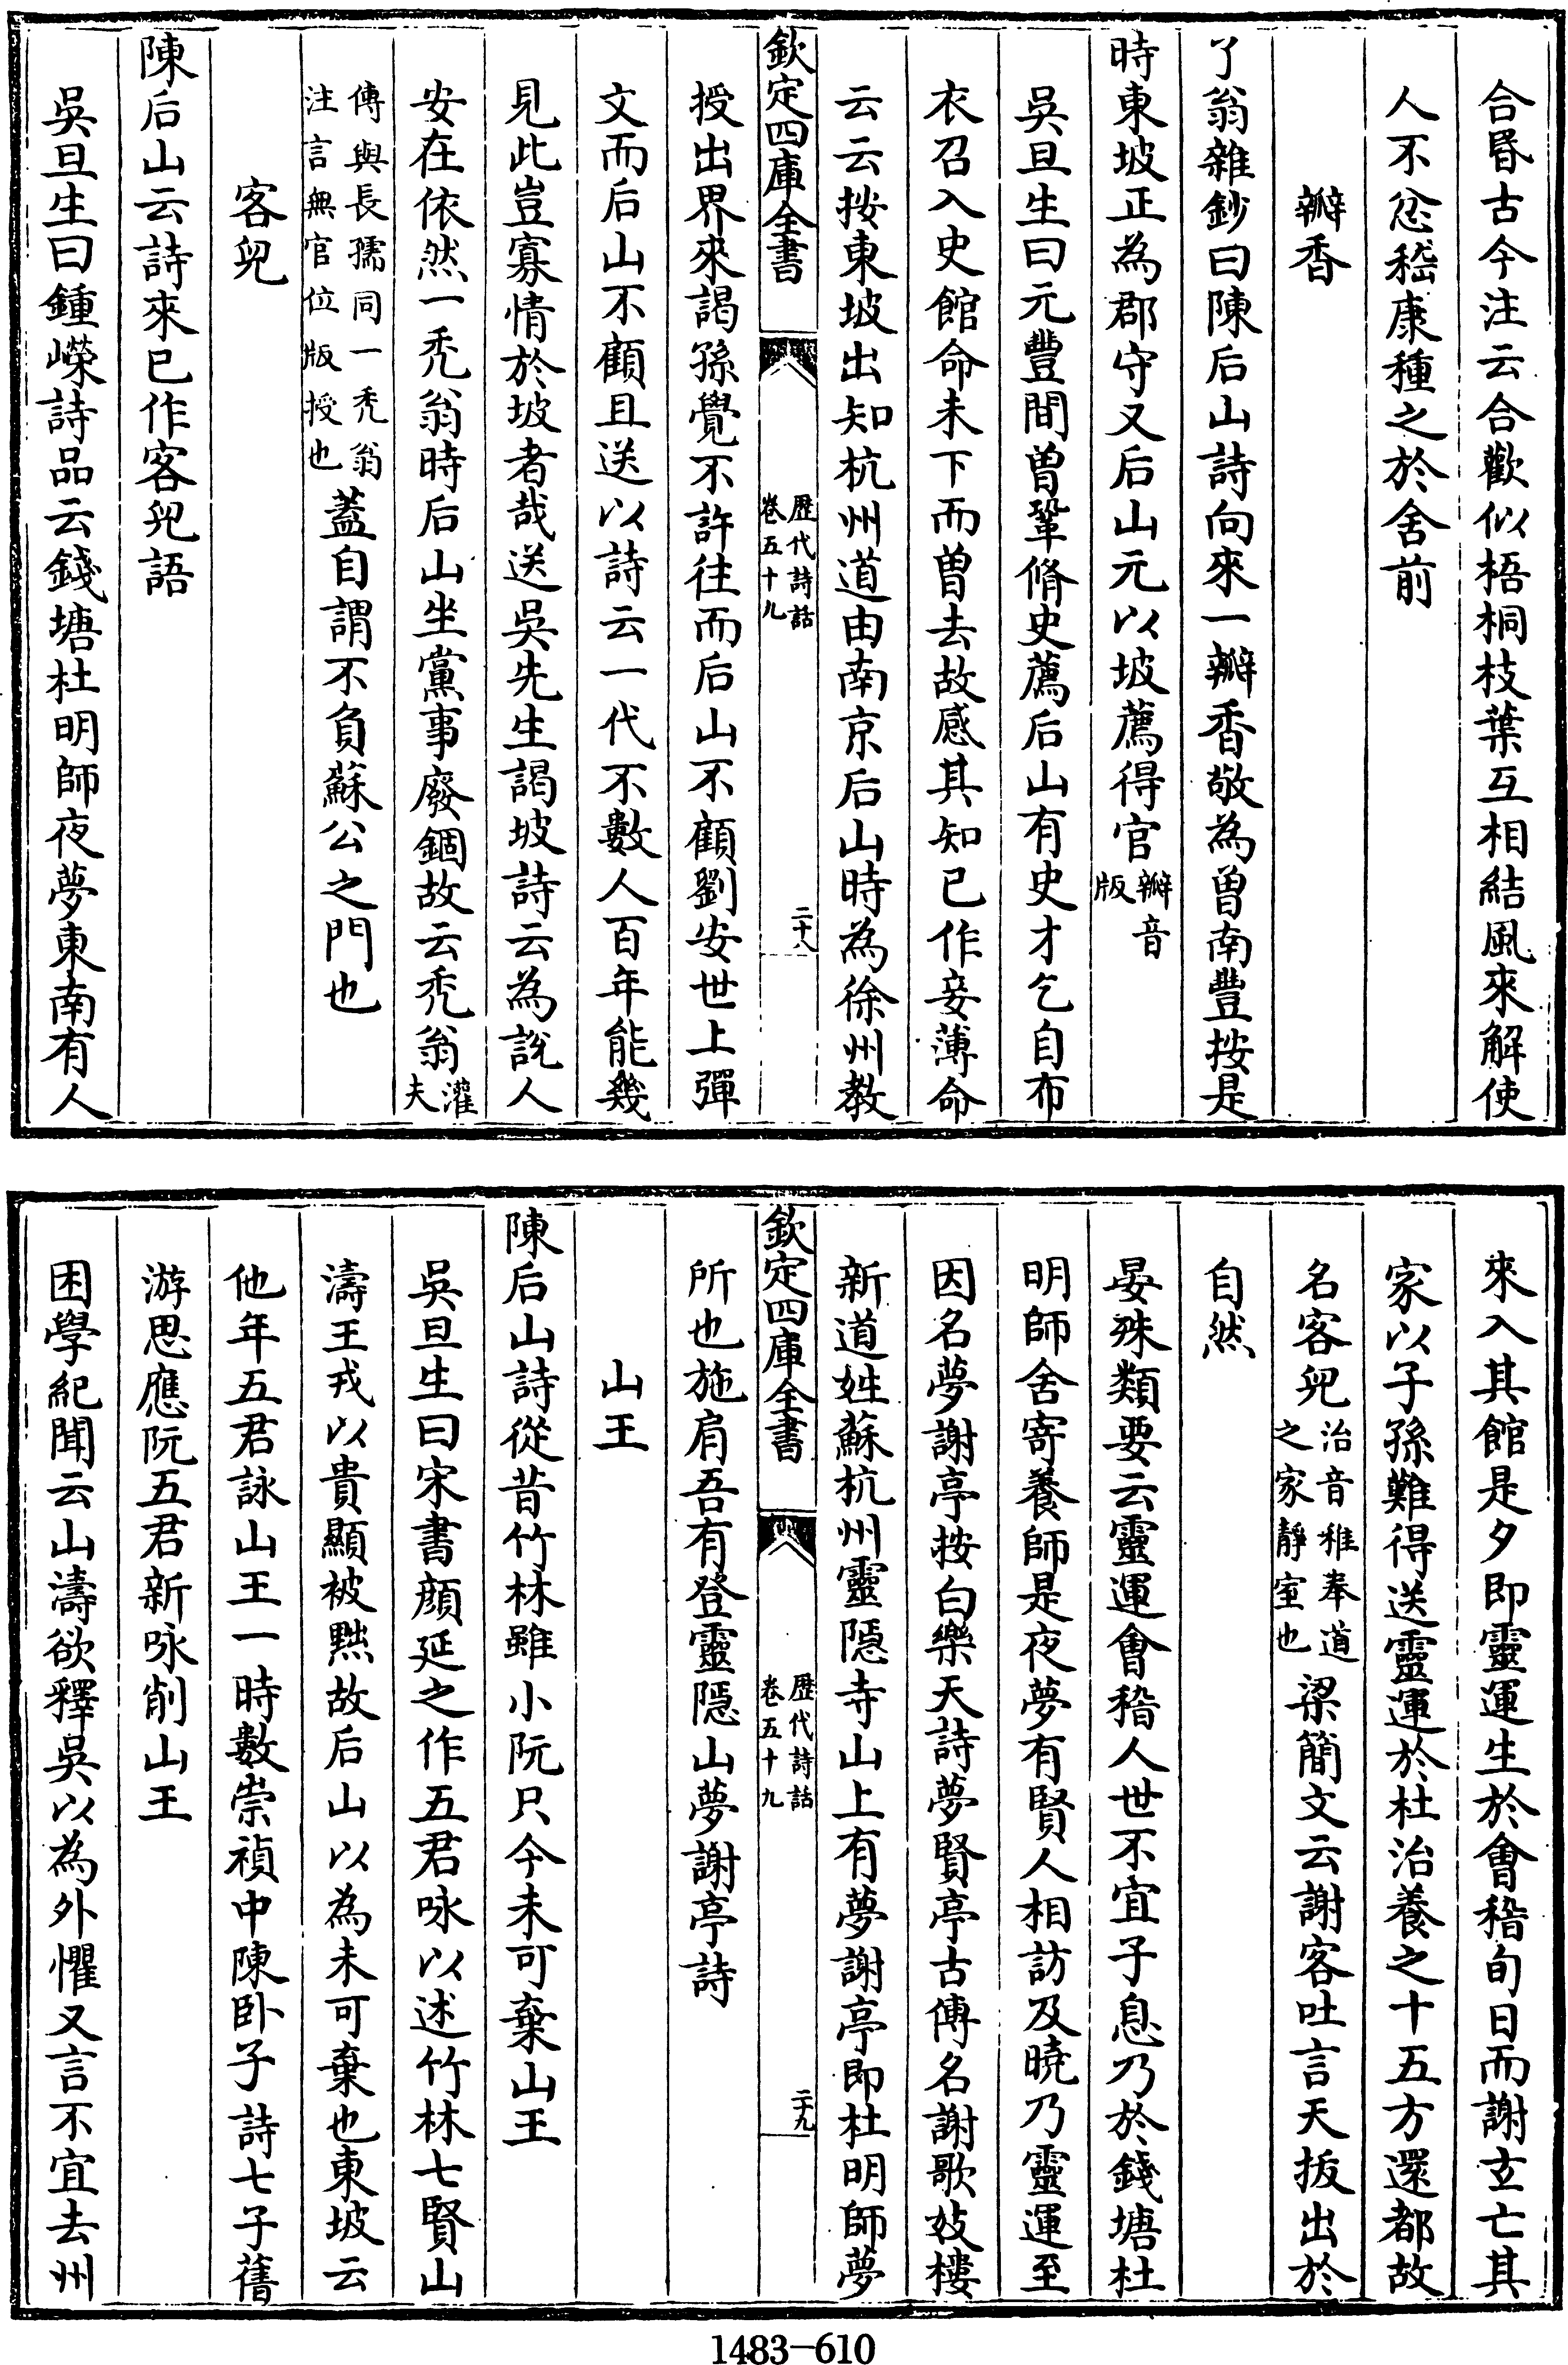 合昏古今注云合歡似梧桐枝葉互相結風來解使
人不忿嵇康種之於舍前
瓣香
了翁雜鈔曰陳后山詩向來一瓣香敬為曾南豐按是
時東坡正為郡守又后山元以坡薦得官瓣音版
吳旦生曰元豐間曾鞏脩史薦后山有史才乞自布
衣召入史館命未下而曾去故感其知已作妾薄命
云云按東坡出知杭州道由南京后山時為徐州教
欽定四庫全書 歷代詩話卷五十九 二十八
授出界來謁孫覺不許往而后山不顧劉安世上彈
文而后山不顧且送以詩云一代不數人百年能幾
見此豈寡情於坡者哉送吳先生謁坡詩云為說人
安在依然一禿翁時后山坐黨事廢錮故云禿翁灌夫
傳與長孺同一禿翁注言無官位版授也蓋自謂不負蘇公之門也
客兒
陳后山云詩來已作客兒語
吳旦生曰鍾嶸詩品云錢塘杜明師夜夢東南有人
來入其館是夕即靈運生於會稽旬日而謝玄亡其
家以子孫難得送靈運於杜治養之十五方還都故
名客兒治音稚奉道之家靜室也梁簡文云謝客吐言天拔出於
自然
晏殊類要云靈運會稽人世不宜子息乃於錢塘杜
明師舍寄養師是夜夢有賢人相訪及曉乃靈運至
因名夢謝亭按白樂天詩夢賢亭古傳名謝歌妓樓
新道姓蘇杭州靈隱寺山上有夢謝亭即杜明師夢
欽定四庫全書 歷代詩話卷五十九 二十九
所也施肩吾有登靈隱山夢謝亭詩
山王
陳后山詩從昔竹林雖小阮只今未可棄山王
吳旦生曰宋書顏延之作五君咏以述竹林七賢山
濤王戎以貴顯被黜故后山以為未可棄也東坡云
他年五君詠山王一時數崇禎中陳卧子詩七子舊
游思應阮五君新咏削山王
困學紀聞云山濤欲釋吳以為外懼又言不宜去州
1483-610